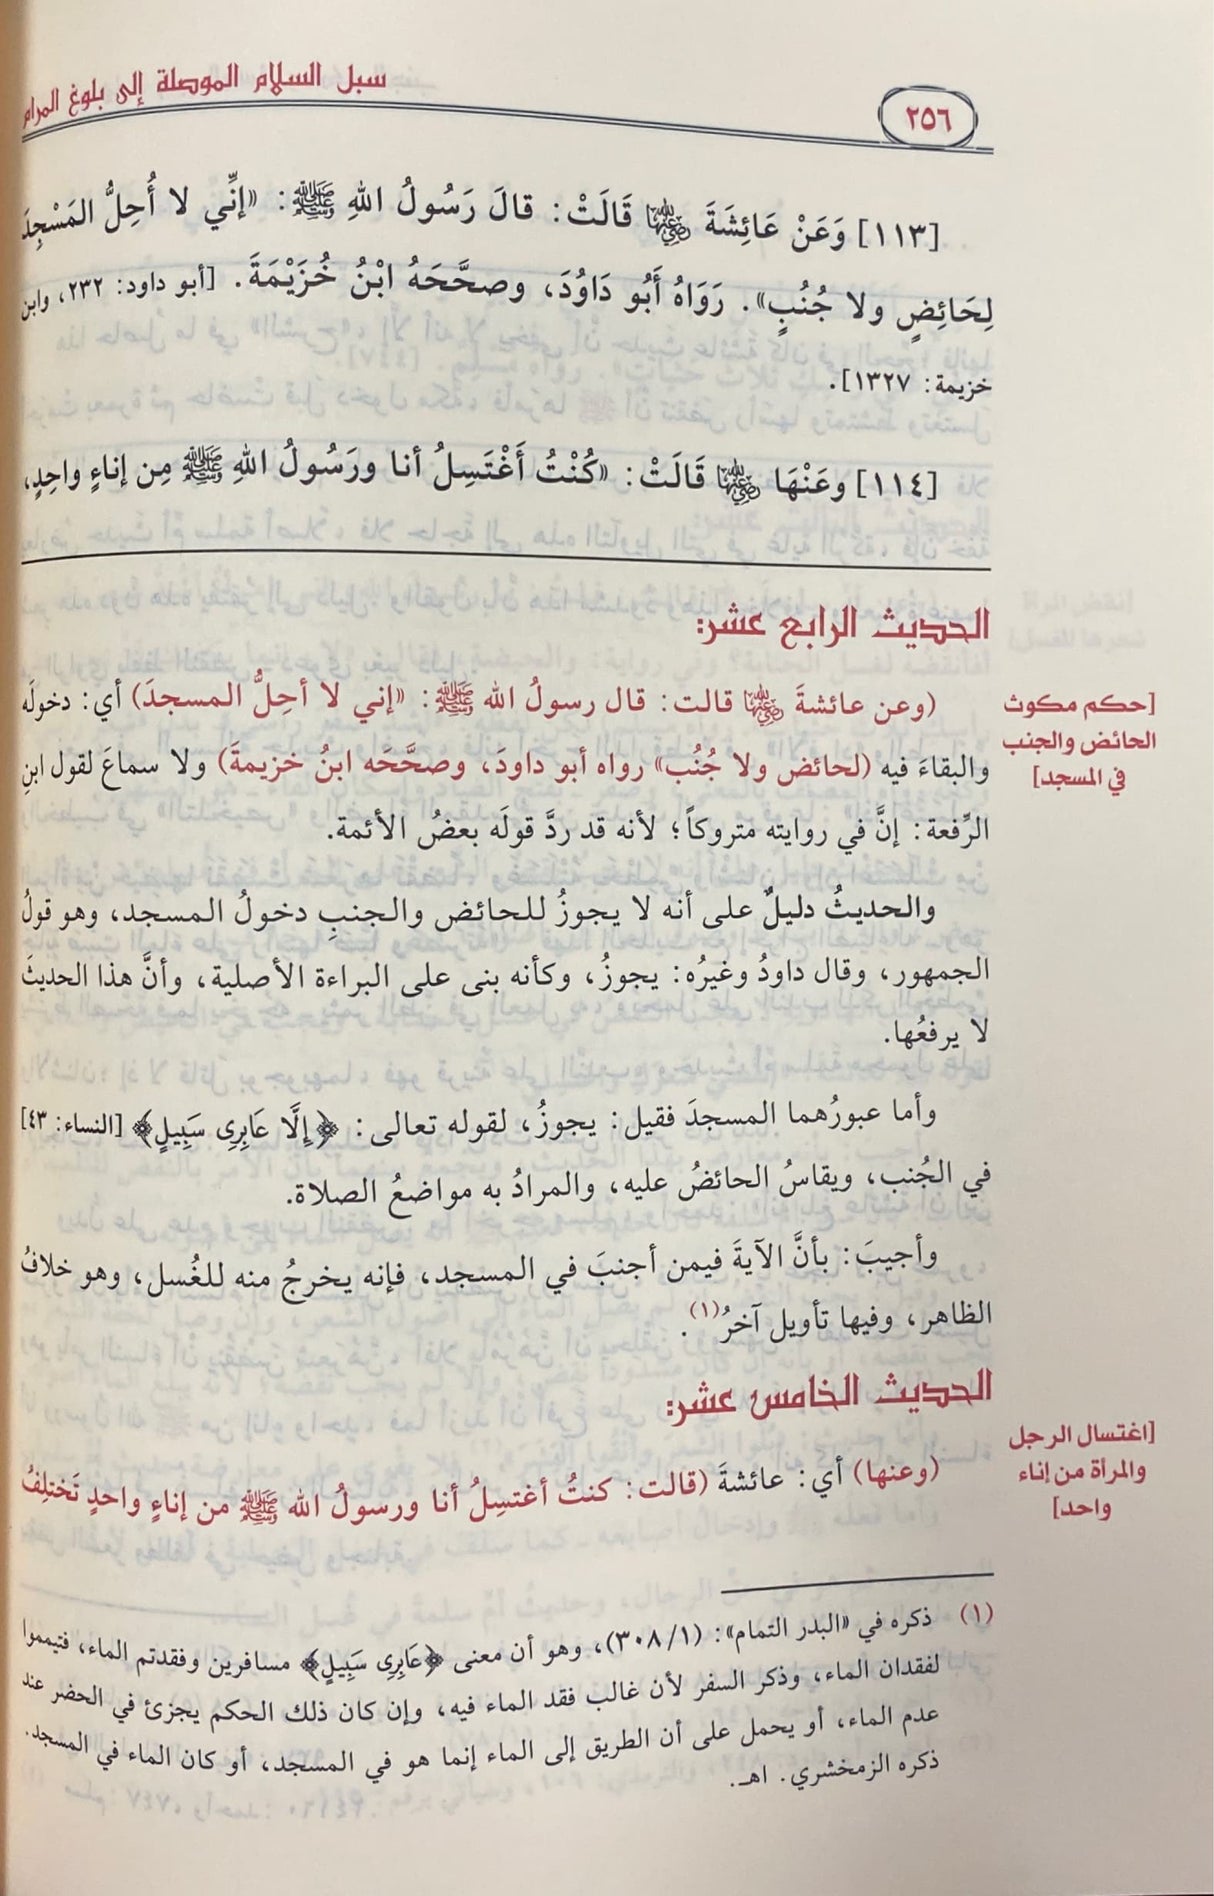 سبل السلام الموصلة إلى بلوغ المرام
٢٥٦
[١١٣] وَعَنْ عَائِشَةَ رضي الله عنها قَالَتْ: قالَ رَسُولُ اللهِ ﷺ: «إنِّي لا أُحِلُّ المَسْجِدَ
لِحَائِضٍ ولا جُنُبٍ». رَوَاهُ أَبُو دَاوُدَ، وصحَّحَهُ ابْنُ خُزَيْمَةَ. [أبو داود: ٢٣٢، وابن
خزيمة: ١٣٢٧].
[١١٤] وعَنْهَا رضي الله عنها قَالَتْ: «كُنْتُ أَغْتَسِلُ أنا ورَسُولُ اللهِ ﷺ مِن إناءٍ واحِدٍ،
الحديث الرابع عشر:
(وعن عائشةَ رضي الله عنها قالت: قال رسولُ الله ﷺ: «إني لا أحِلُّ المسجدَ) أي: دخولَه
والبقاءَ فيه (لحائض ولا جُنُب» رواه أبو داودَ، وصحَّحَه ابنُ خزيمةَ) ولا سماعَ لقول ابنِ
الرِّفعة: إنَّ في روايته متروكاً؛ لأنه قد ردَّ قولَه بعضُ الأئمة.
[حكم مكوث
الحائض والجنب
في المسجد]
والحديثُ دليلٌ على أنه لا يجوزُ للحائض والجنبِ دخولُ المسجد، وهو قولُ
الجمهور، وقال داودُ وغيرُه: يجوزُ، وكأنه بنى على البراءة الأصلية، وأنَّ هذا الحديثَ
لا يرفعُها.
وأما عبورُهما المسجدَ فقيل: يجوزُ، لقوله تعالى: ﴿إِلَّا عَابِرِى سَبِيلٍ﴾ [النساء: ٤٣]
في الجُنب، ويقاسُ الحائضُ عليه، والمرادُ به مواضعُ الصلاة.
وأجيبَ: بأنَّ الآيةَ فيمن أجنبَ في المسجد، فإنه يخرجُ منه للغُسل، وهو خلافُ
الظاهر، وفيها تأويل آخرُ(١).
الحديث الخامس عشر:
(وعنها) أي: عائشةَ (قالت: كنتُ أغتسِلُ أنا ورسولُ الله ﷺ من إناءٍ واحدٍ تَختلِفُ
[اغتسال الرجل
والمرأة من إناء
واحد]
(١) ذكره في «البدر التمام»: (٣٠٨/١)، وهو أن معنى ﴿عَابِرِى سَبِيلٍ﴾ مسافرين وفقدتم الماء، فتيمموا
لفقدان الماء، وذكر السفر لأن غالب فقد الماء فيه، وإن كان ذلك الحكم يجزئ في الحضر عند
عدم الماء، أو يحمل على أن الطريق إلى الماء إنما هو في المسجد، أو كان الماء في المسجد.
ذكره الزمخشري. اهـ.